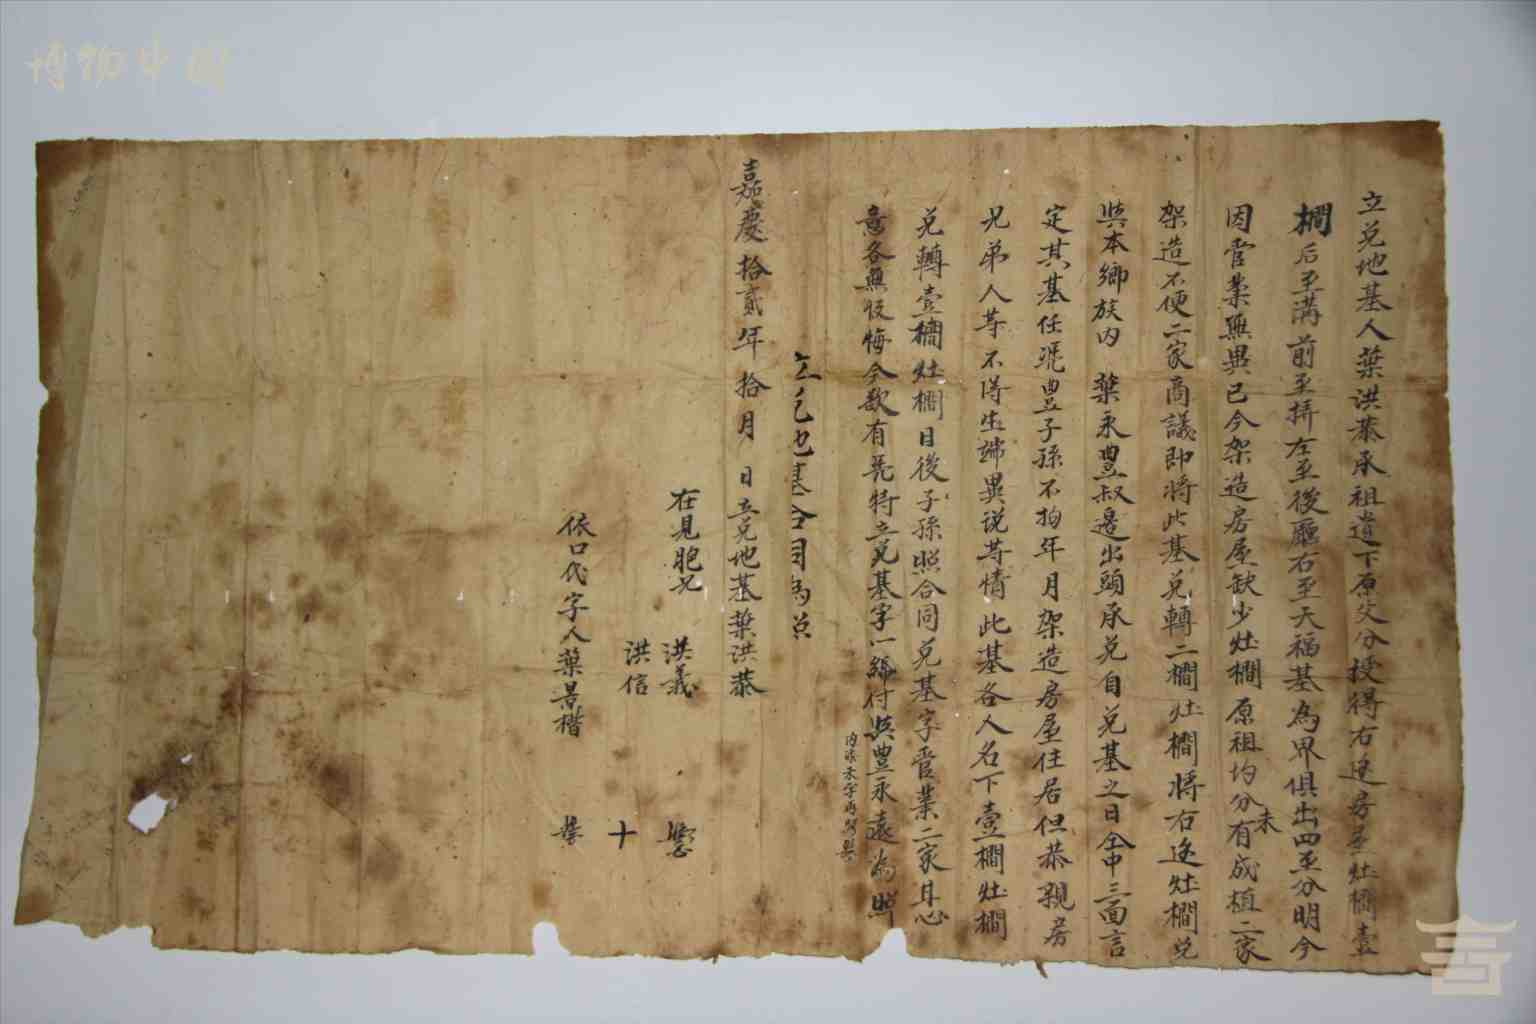 立兌地基人葉洪恭承祖遺下原父分授得右邊房屋灶櫚壹
櫚后至溝前至拼左至後廳右至天福基為界俱出四至分明今
因管業無異已今架造房屋缺少灶櫚原祖均分未有成植二家
架造不便二家商議即將此基兌轉二櫚灶櫚將右邊灶櫚兌
與本鄉族内 葉永豊叔邊出頭承兌自兌基之日仝中三面言
定其基任凴豊子孫不拘年月架造房屋住居但恭親房
兄弟人等不得生端異說等情此基各人名下壹櫚灶櫚
兌轉壹櫚灶櫚日後子孫照合同兌基字管業二家甘心
意各無反悔今欲有凭特立兌基字一紙付與豊永遠為照
内添未字再照
立兌地基合同為照
嘉慶拾貳年拾月 日立兌地基葉洪恭
在見胞兄 洪義
洪信 十
依口代字人葉景楷
博物中國